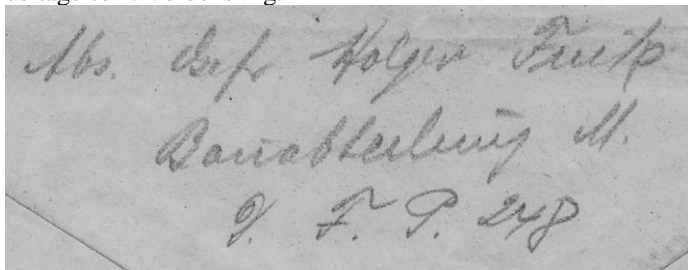 Abs. Gefr Holger Funk
Bauabteilung M.
D. F. P. 248